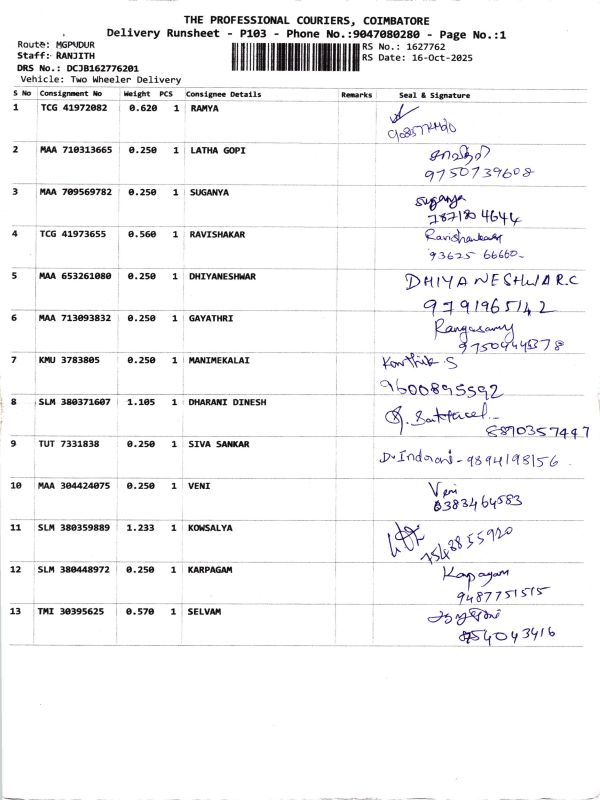 THE PROFESSIONAL COURIERS, COIMBATORE
Delivery Runsheet - P103 - Phone No.:9047080280 - Page No.:1
Route: MGPUDUR
Staff: RANJITH
DRS No.: DCJB162776201
Vehicle: Two Wheeler Delivery
RS No.: 1627762
RS Date: 16-Oct-2025
S No Consignment No Weight PCS Consignee Details Remarks Seal & Signature
1 TCG 41972082 0.620 1 RAMYA
2 MAA 710313665 0.250 1 LATHA GOPI
9750739608
3 MAA 709569782 0.250 1 SUGANYA suganya
7871804644
4 TCG 41973655 0.560 1 RAVISHAKAR Ravishankar
93625 66660
5 MAA 653261080 0.250 1 DHIYANESHWAR DHIYANESHWAR.C
9791965142
6 MAA 713093832 0.250 1 GAYATHRI Rangasamy
9750944537 8
7 KMU 3783805 0.250 1 MANIMEKALAI Karthik S
9600895592
8 SLM 380371607 1.105 1 DHARANI DINESH
8890357447
9 TUT 7331838 0.250 1 SIVA SANKAR D.Indrani - 9894198156
10 MAA 304424075 0.250 1 VENI Veni
6383464583
11 SLM 380359889 1.233 1 KOWSALYA
7548855920
12 SLM 380448972 0.250 1 KARPAGAM Kapagam
9487751515
13 TMI 30395625 0.570 1 SELVAM
8754043416